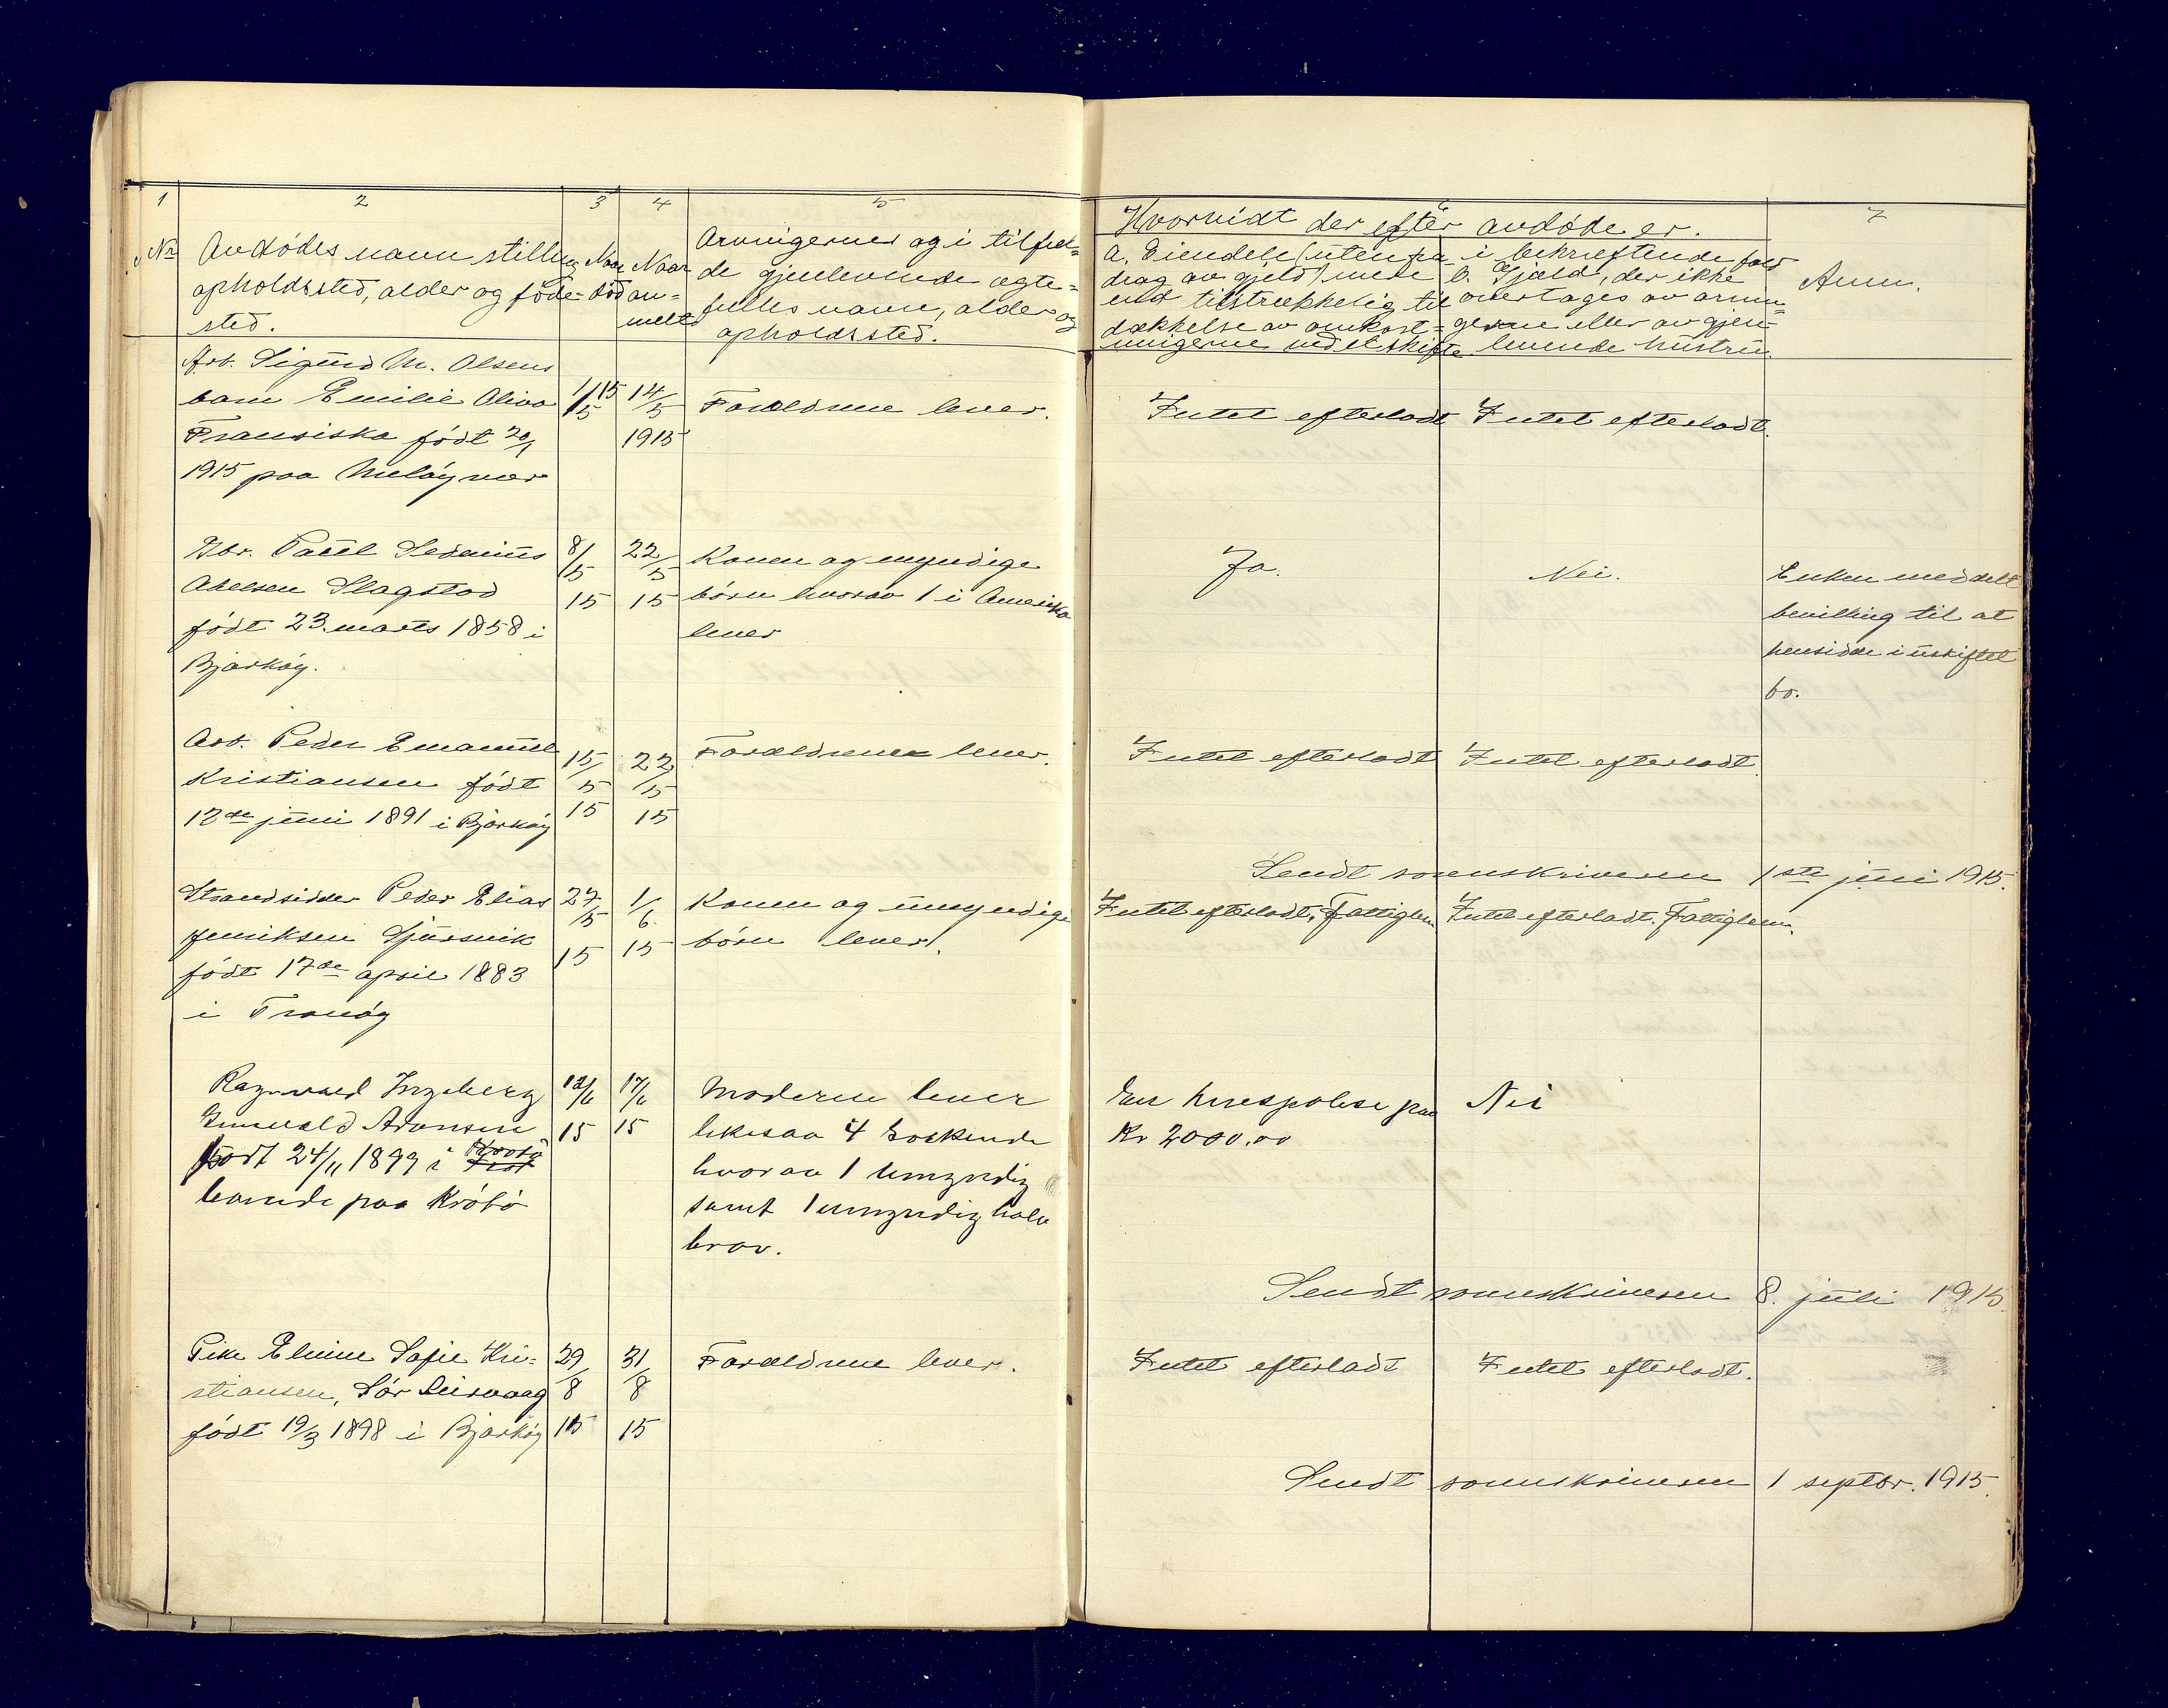 1 2 3 4 5
No Avdødes navn stilling
opholdssted, alder og føde=
sted.
Naar
død
Naar
an=
meldt
Arvingernes og i tilfæl=
de gjenlevende ægte=
fælles navn, alder og
opholdssted.
6 7
Hvorvidt der efter avdøde er.
a. Eiendele (uten fra=
drag av gjeld) mere
end tilstrækkelig til
dækkelse av omkost=
ningerne ved et skifte
i bekræftende fald
b. Gjæld, der ikke
overtages av arvin=
gerne eller av gjen=
levende hustru
Anm.
Arb. Sigurd M. Olsens
barn Emilie Oliva
Fransiska født 20/1
1915 paa Meløyvær
1/15
5
14/
5
1915
Forældrene lever.
Intet efterladt
Intet efterladt.
Gbr. Paul Sedenius
Abelsen Slagstad
født 23. marts 1858 i
Bjarkøy.
8/
5
15
22/
5
15
Konen og myndige
børn hvorav 1 i Amerika
lever
Ja.
Nei.
Enken meddelt
bevilling til at
hensidde i uskiftet
bo.
Arb. Peder Emanuel
Kristiansen født
12de juni 1891 i Bjarkøy
15/
5
15
22/
5
15
Forældrene lever.
Intet efterladt
Intet efterladt.
Sendt sorenskriveren 1ste juni 1915.
Strandsidder Peder Elias
Jenriksen Sjursvik
født 17de april 1883
i Tranøy
27/
5
15
1/
6
15
Konen og umyndige
børn lever.
Intet efterladt, Fattiglem
Intet efterladt. Fattiglem.
Ragnvald Ingeberg
Gunvald Aronsen
født 24/11 1899 i Krøtø
boende paa Krøtø
12/6
15
17/6
15
Moderen lever
likesaa 4 søskende
hvorav 1 umyndig
samt 1 umyndig halv
bror.
En livespolise paa
Kr 2000.00
Nei
Sendt sorenskriveren 8. juli 1915.
Pike Elvine Sofie Kri=
stiansen, Sør Leirvaag
født 19/3 1898 i Bjarkøy
29/
8
15
31/
8
15
Forældrene lever.
Intet efterladt
Intet efterladt.
Sendt sorenskriveren 1 septbr. 1915.